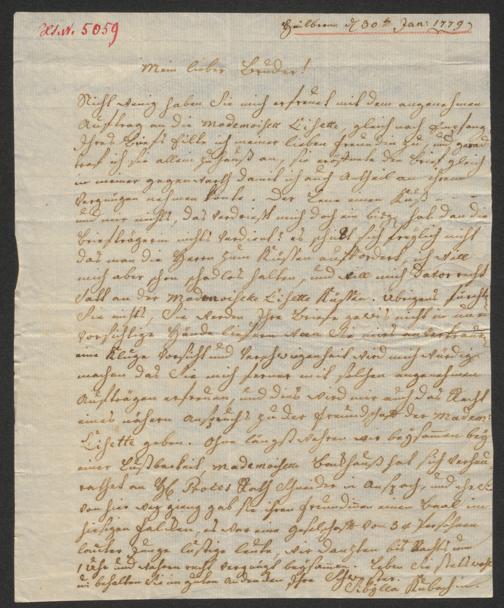 Hs. N. 5059
Heilbron d 30ten Jan: 1779
Mein lieber Bruder!
Nicht wenig haben Sie mich erfreuet mit dem angenehmen
Auftrag an die Mademoiselle Lisette, gleich nach Empfang
Ihres Briefs eilte ich meiner lieben Freundin zu, und
traf ich sie allein zu Hauß an, sie eröffnete den Brief gleich
in meiner gegenwarth damit ich auch Antheil an ihrem
Vergnügen nehmen könte. Der Lene einen Kuß
und mir nichts, das verdriest mich doch ein bisg, hat dan die
Briefträgerin nichts verdient? es schückt sich freylich nicht
das man die Herrn zum Küssen auffordert, ich will
mich aber schon schadlos halten, und will mich davor recht
satt an der Mademoiselle Lisette Küssen. Übrigens fürchten
Sie nichts, Sie werden Ihre Briefe gewis nicht in
vorsichtige Hände liefern wan Sie mirs anvertrauen
eine Kluge Vorsicht und Verschwigenheit wird mich würdig
machen das Sie mich ferner mit solchen angenehmen
Aufträgen erfreuen, und dies wird mir auch das Recht
eines nähern Anspruchs zu der Freundschaft der Madem:
Lisette geben. Ohne längst waren wir beysammen bey
einer Lustbarkeit, Mademoiselle hat sich verheu
rathet an H. Rath Schneider in Anspach, und
von hier weg gieng gab sie ihren Freundinen einen Baal im
hiesigen Falken, es war eine geselschafft von 34 Persohnen
lauter junge lustige leute, wir danzten bis Nachts um
1 Uhr und waren recht vergnügt beysammen. Leben Sie wohl
und behalten Sie im guten andenken Ihre Schwester.
Sibylla